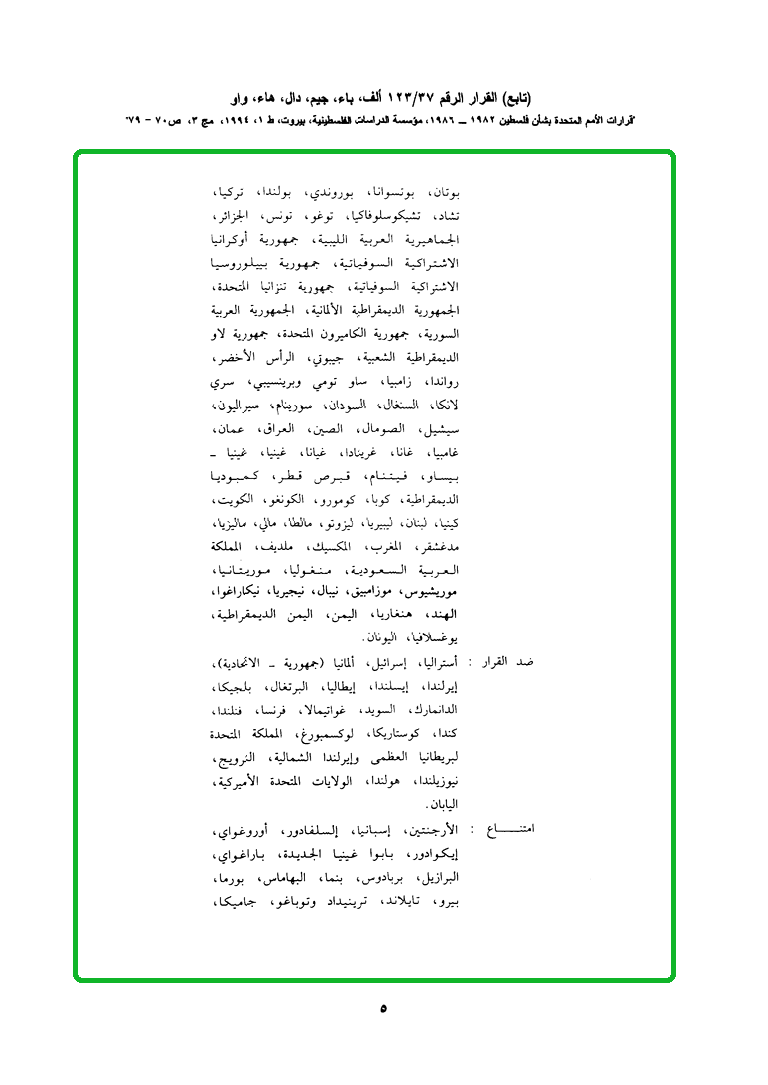 (تابع) القرار الرقم ١٢٣/٣٧ ألف، باء، جيم، دال، هاء، واو
"قرارات الأمم المتحدة بشأن فلسطين ١٩٨٢ ــ ١٩٨٦، مؤسسة الدراسات الفلسطينية، بيروت، ط ١، ١٩٩٤، مج ٣، ص ٧٠ - ٧٩"
بوتان، بوتسوانا، بوروندي، بولندا، تركيا،
تشاد، تشيكوسلوفاكيا، توغو، تونس، الجزائر،
الجماهيرية العربية الليبية، جمهورية أوكرانيا
الاشتراكية السوفياتية، جمهورية بييلوروسيا
الاشتراكية السوفياتية، جمهورية تنزانيا المتحدة،
الجمهورية الديمقراطية الألمانية، الجمهورية العربية
السورية، جمهورية الكاميرون المتحدة، جمهورية لاو
الديمقراطية الشعبية، جيبوتي، الرأس الأخضر،
رواندا، زامبيا، ساو تومي وبرينسيبي، سري
لانكا، السنغال، السودان، سورينام، سيراليون،
سيشيل، الصومال، الصين، العراق، عمان،
غامبيا، غانا، غرينادا، غيانا، غينيا، غينيا ــ
بيساو، فيتنام، قبرص قطر، كمبوديا
الديمقراطية، كوبا، كومورو، الكونغو، الكويت،
كينيا، لبنان، ليبيريا، ليزوتو، مالطا، مالي، ماليزيا،
مدغشقر، المغرب، المكسيك، ملديف، المملكة
العربية السعودية، منغوليا، موريتانيا،
موريشيوس، موزامبيق، نيبال، نيجيريا، نيكاراغوا،
الهند، هنغاريا، اليمن، اليمن الديمقراطية،
يوغسلافيا، اليونان.
ضد القرار : أستراليا، إسرائيل، ألمانيا (جمهورية ــ الاتحادية)،
إيرلندا، إيسلندا، إيطاليا، البرتغال، بلجيكا،
الدانمارك، السويد، غواتيمالا، فرنسا، فنلندا،
كندا، كوستاريكا، لوكسمبورغ، المملكة المتحدة
لبريطانيا العظمى وإيرلندا الشمالية، النرويج،
نيوزيلندا، هولندا، الولايات المتحدة الأميركية،
اليابان.
امتنـــــاع : الأرجنتين، إسبانيا، إلسلفادور، أوروغواي،
إيكوادور، بابوا غينيا الجديدة، باراغواي،
البرازيل، بربادوس، بنما، البهاماس، بورما،
بيرو، تايلاند، ترينيداد وتوباغو، جاميكا،
٥